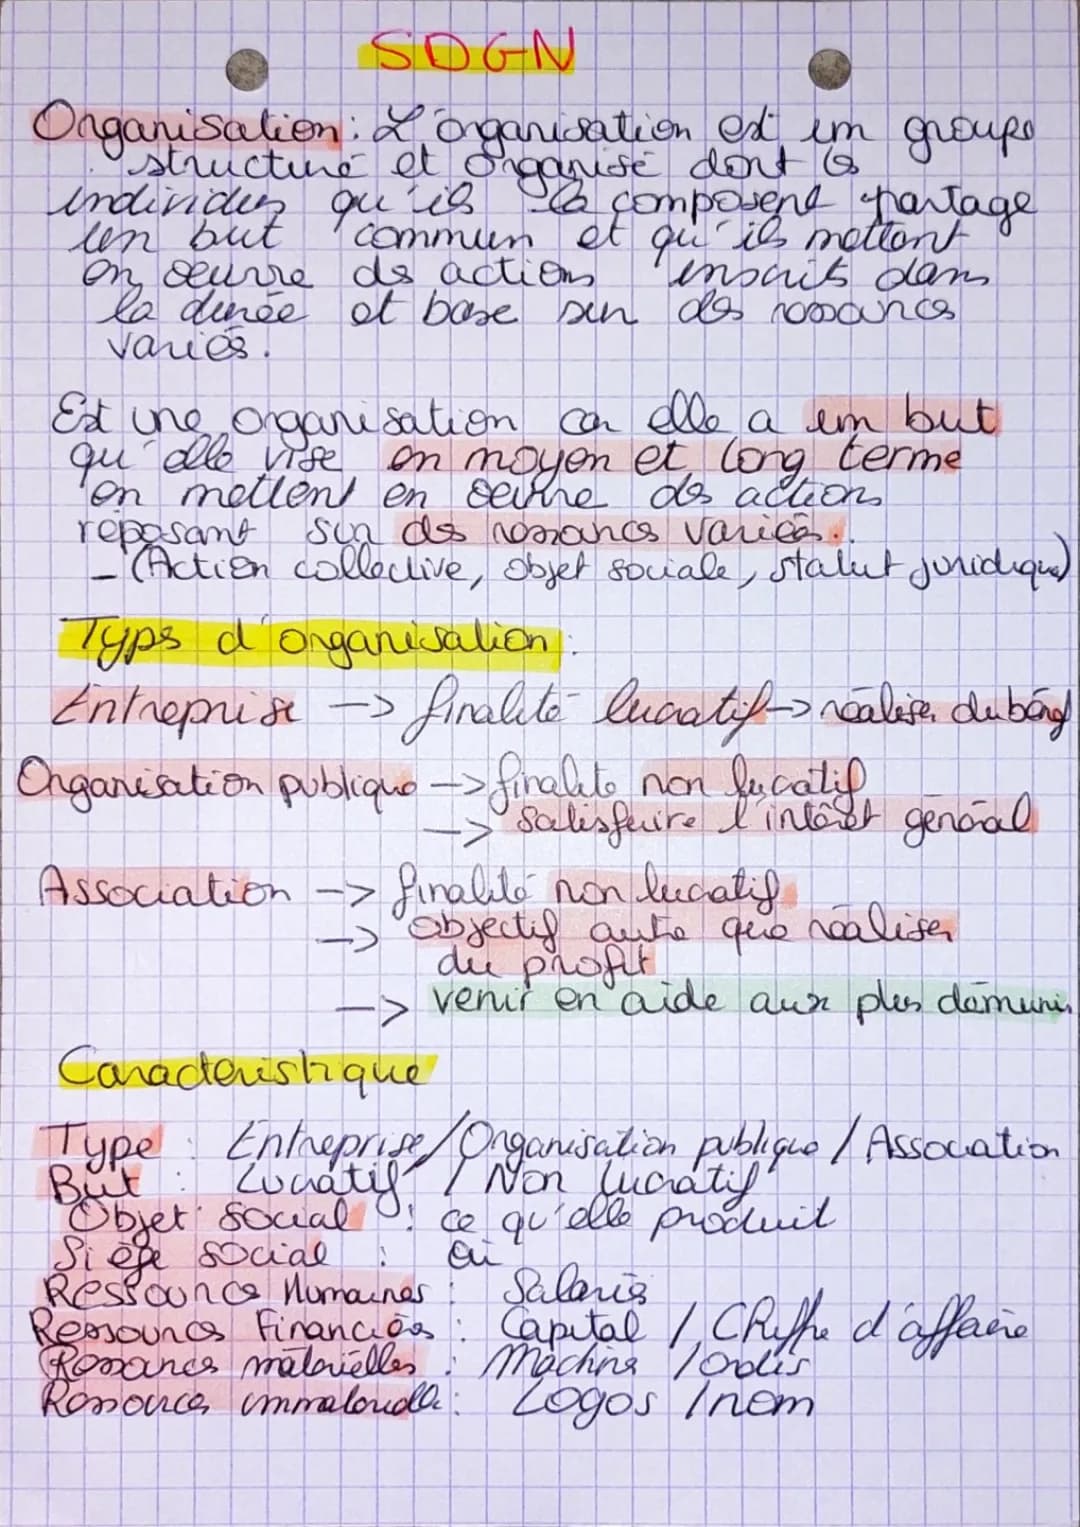 SDGN
Organisation : L'organisation est un groupe
structuré et organisé dont les
individus qu'ils la composent partage
un but commun et qu'ils mettent
en oeuvre des actions inscrits dans
la durée et base sur des ressources
variés.
Est une organisation car elle a un but
qu'elle vise en moyen et long terme
en mettent en oeuvre des actions
reposant sur des ressources variées.
- (Action collective, objet sociale, statut juridique)
Types d'organisation :
Entreprise -> finalité lucratif -> réaliser du bénéf
Organisation publique -> finalité non lucatif
-> satisfaire l'intérêt général
Association -> finalité non lucratif
-> objectif autre que réaliser
du profit
-> venir en aide aux plus démunis
Caracteristique
Type : Entreprise / Organisation publique / Association
But : Lucratif / Non lucratif
Objet social : ce qu'elle produit
Siège social : où
Ressources Humaines : Salariés
Ressources Financières : Capital / Chiffre d'affaire
Ressources matérielles : Machine / Ordis
Ressources immatérielle : Logos / nom